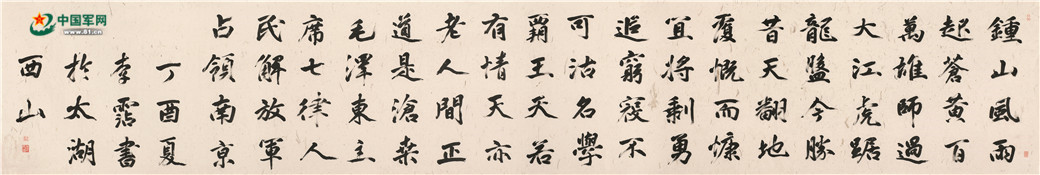 中国军网
www.81.cn
鍾山風雨
起蒼黃百
萬雄師過
大江虎踞
龍盤今勝
昔天翻地
覆慨而慷
宜將剩勇
追窮寇不
可沽名學
霸王天若
有情天亦
老人間正
道是滄桑
毛澤東主
席七律人
民解放軍
占領南京
丁酉夏
李霑書
於太湖
西山